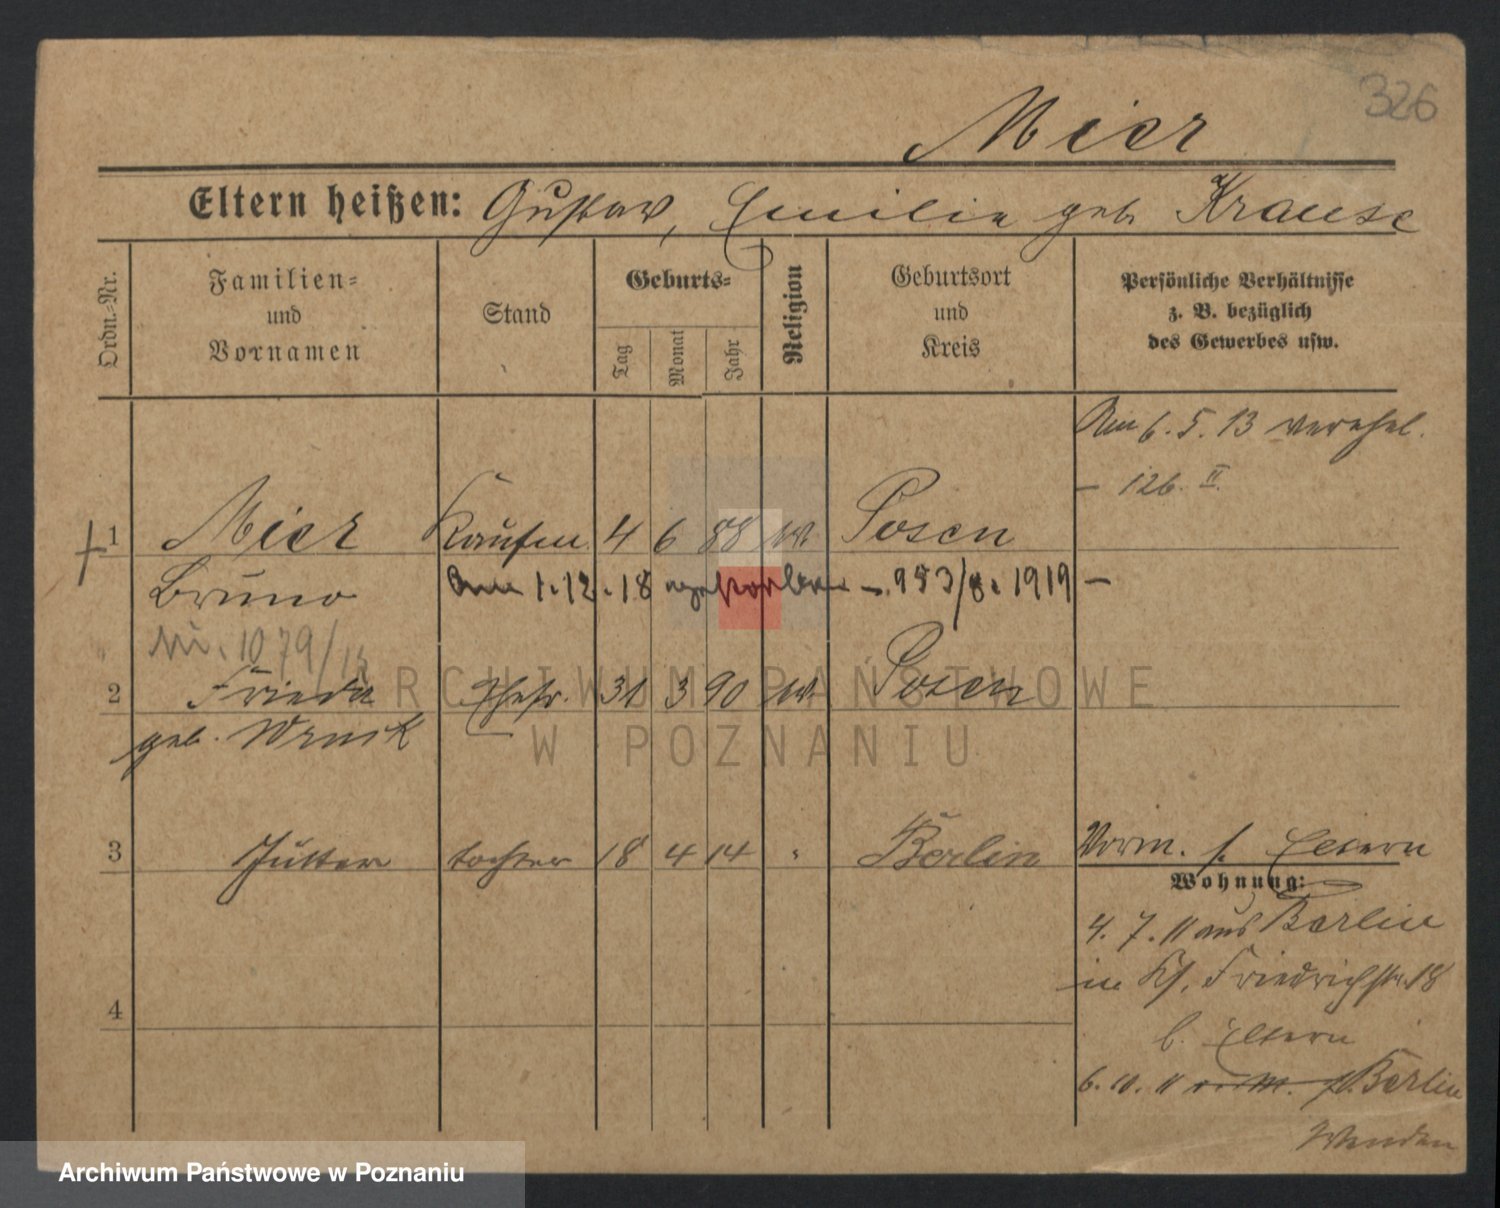 326
Mier
Eltern heißen: Gustav, Emilie geb Krause
Ordn.-Nr.
Familien- und Vornamen
Stand
Geburts-
Tag
Monat
Jahr
Religion
Geburtsort und Kreis
Persönliche Verhältnisse z. B. bezüglich des Gewerbes usw.
Am 6. 5. 13 verehel.
– 126. II.
1 Mier Kaufm. 4 6 88 Posen
Bruno Am 1. 12. 18 – 953/8. 1919 –
1079/
2 Frieda Ehefr. 31 3 90 Posen
geb.
3 tochter 18 4 14 " Berlin
Vorm. f. Eltern
Wohnung:
4. 7. 11 aus Berlin
in Friedrichstr. 18
b. Eltern
4
6. 10. 11 Berlin
Wenden
ARCHIWUM PAŃSTWOWE
W POZNANIU
Archiwum Państwowe w Poznaniu